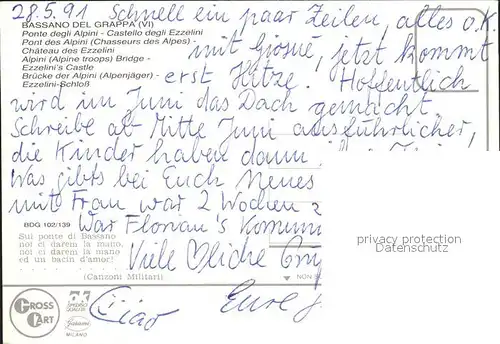 28.5.91 Schnell ein paar Zeilen, alles o.K.
BASSANO DEL GRAPPA (VI)
Ponte degli Alpini - Castello degli Ezzelini
Pont des Alpini (Chasseurs des Alpes) -
Château des Ezzelini
Alpini (Alpine troops) Bridge -
Ezzelini's Castle
Brücke der Alpini (Alpenjäger) -
Ezzelini-Schloß
mit Giosuè, jetzt kommt
erst Hitze. Hoffentlich
wird im Juni das Dach gemacht.
Schreibe ab Mitte Juni ausführlicher,
die Kinder haben dann
Was gibts bei Euch Neues
mit Frau war 2 Wochen
BDG 102/139
War Florian's Kommun
Sul ponte di Bassano
noi ci darem la mano,
noi ci darem la mano
ed un bacin d'amor!
(Canzoni Militari)
Viele ♡liche
NON
privacy protection
Datenschutz
Ciao
Eure
GROSS
CART
MILANO